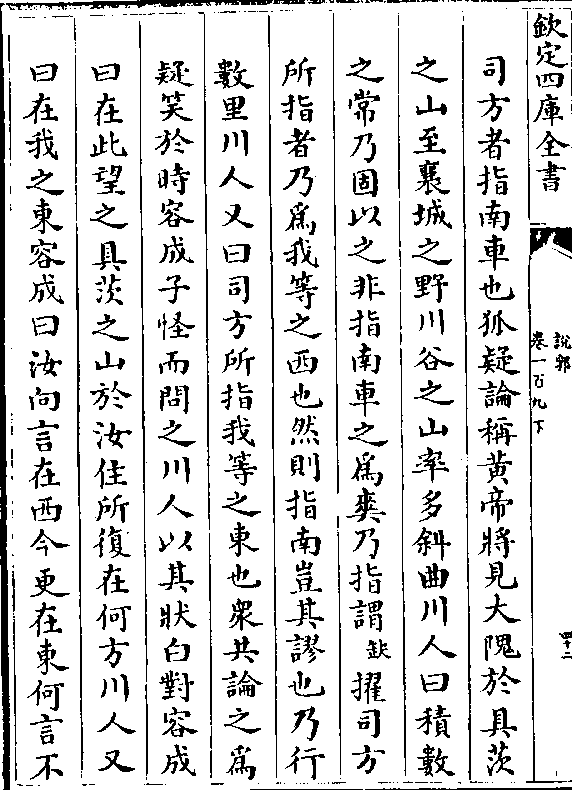 欽定四庫全書
說郛
卷一百九下
四十二
司方者指南車也狐疑論稱黄帝將見大隗於具茨
之山至襄城之野川谷之山率多斜曲川人曰積數
之常乃固以之非指南車之為爽乃指謂缺擢司方
所指者乃為我等之西也然則指南豈其謬也乃行
數里川人又曰司方所指我等之東也衆共論之為
疑笑於時容成子怪而問之川人以其狀白對容成
曰在此望之具茨之山於汝住所復在何方川人又
曰在我之東容成曰汝向言在西今更在東何言不